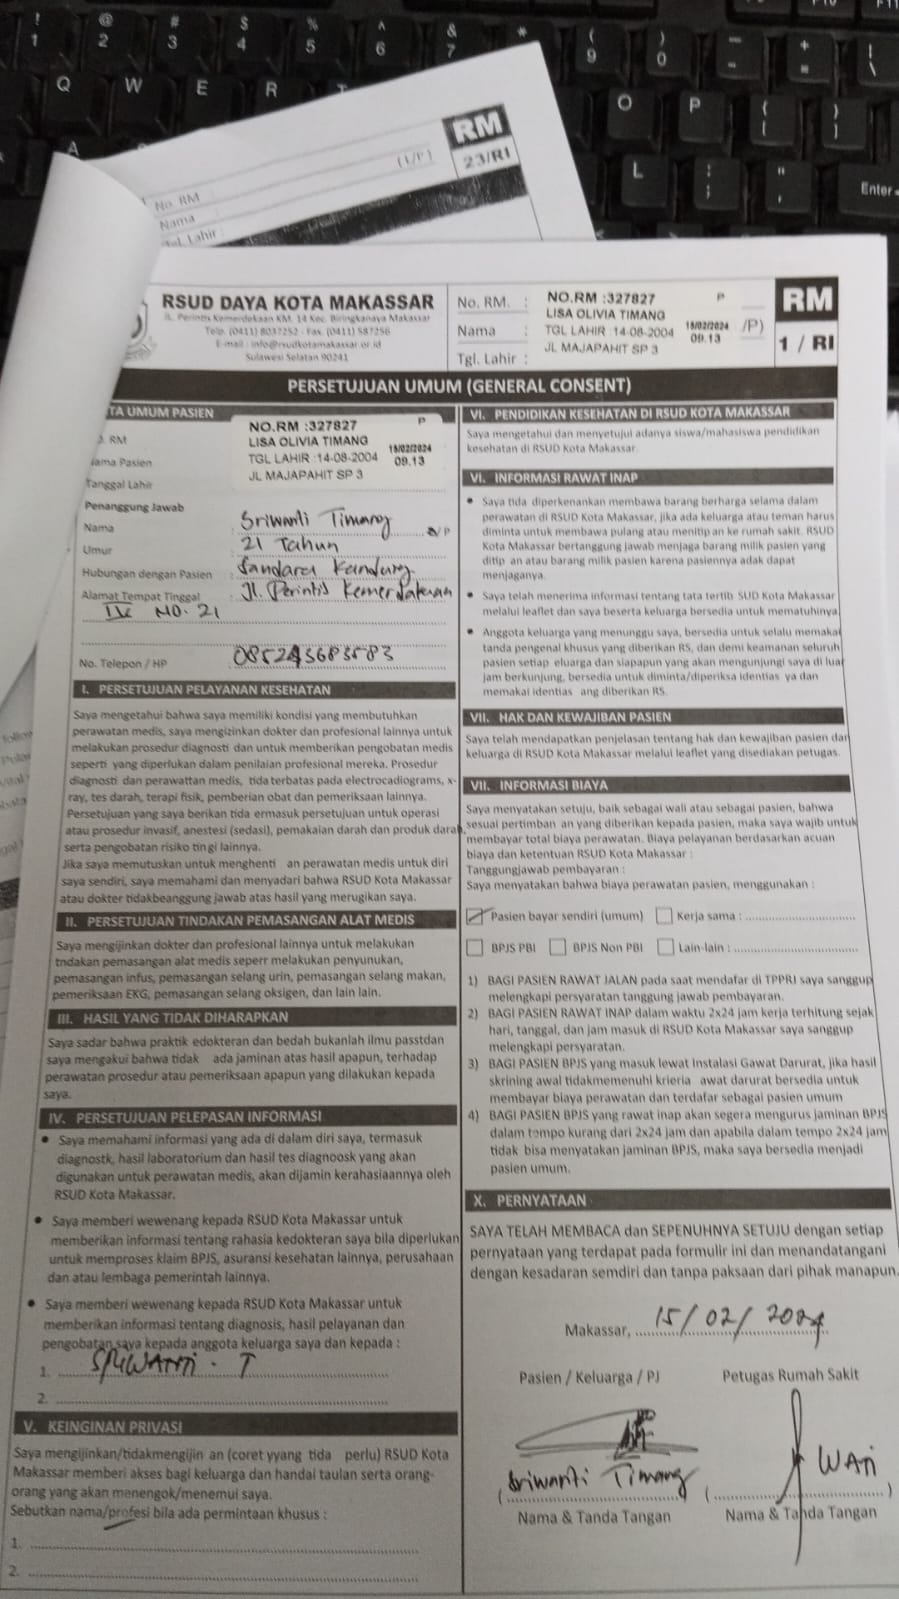 RM
23/RI
(L/P)
No. RM
Nama
Tgl. Lahir
RSUD DAYA KOTA MAKASSAR
JL. Perintis Kemerdekaan KM. 14 Kec. Biringkanaya Makassar
Telp. (0411) 8037252 - Fax. (0411) 587256
E-mail : info@rsudkotamakassar.or.id
Sulawesi Selatan 90241
No. RM. :
Nama :
Tgl. Lahir :
NO.RM :327827 P
LISA OLIVIA TIMANG
TGL LAHIR :14-08-2004 15/02/2024
09.13
JL MAJAPAHIT SP 3
/P)
RM
1 / RI
PERSETUJUAN UMUM (GENERAL CONSENT)
TA UMUM PASIEN
RM
Nama Pasien
Tanggal Lahir
NO.RM :327827 P
LISA OLIVIA TIMANG
TGL LAHIR :14-08-2004 15/02/2024
09.13
JL MAJAPAHIT SP 3
Penanggung Jawab
Nama : Sriwanti Timang /P
Umur : 21 Tahun
Hubungan dengan Pasien : Sandara Kandung
Alamat Tempat Tinggal : Jl. Perintis Kemerdekaan
IV NO. 21
No. Telepon / HP : 085243683583
I. PERSETUJUAN PELAYANAN KESEHATAN
Saya mengetahui bahwa saya memiliki kondisi yang membutuhkan
perawatan medis, saya mengizinkan dokter dan profesional lainnya untuk
melakukan prosedur diagnosti dan untuk memberikan pengobatan medis
seperti yang diperlukan dalam penilaian profesional mereka. Prosedur
diagnosti dan perawattan medis, tida terbatas pada electrocadiograms, x-
ray, tes darah, terapi fisik, pemberian obat dan pemeriksaan lainnya.
Persetujuan yang saya berikan tida ermasuk persetujuan untuk operasi
atau prosedur invasif, anestesi (sedasi), pemakaian darah dan produk darah,
serta pengobatan risiko tin gi lainnya.
Jika saya memutuskan untuk menghenti an perawatan medis untuk diri
saya sendiri, saya memahami dan menyadari bahwa RSUD Kota Makassar
atau dokter tidakbeanggung jawab atas hasil yang merugikan saya.
II. PERSETUJUAN TINDAKAN PEMASANGAN ALAT MEDIS
Saya mengijinkan dokter dan profesional lainnya untuk melakukan
tndakan pemasangan alat medis seperr melakukan penyunukan,
pemasangan infus, pemasangan selang urin, pemasangan selang makan,
pemeriksaan EKG, pemasangan selang oksigen, dan lain lain.
III. HASIL YANG TIDAK DIHARAPKAN
Saya sadar bahwa praktik edokteran dan bedah bukanlah ilmu passtdan
saya mengakui bahwa tidak ada jaminan atas hasil apapun, terhadap
perawatan prosedur atau pemeriksaan apapun yang dilakukan kepada
saya.
IV. PERSETUJUAN PELEPASAN INFORMASI
• Saya memahami informasi yang ada di dalam diri saya, termasuk
diagnostk, hasil laboratorium dan hasil tes diagnoosk yang akan
digunakan untuk perawatan medis, akan dijamin kerahasiaannya oleh
RSUD Kota Makassar.
• Saya memberi wewenang kepada RSUD Kota Makassar untuk
memberikan informasi tentang rahasia kedokteran saya bila diperlukan
untuk memproses klaim BPJS, asuransi kesehatan lainnya, perusahaan
dan atau lembaga pemerintah lainnya.
• Saya memberi wewenang kepada RSUD Kota Makassar untuk
memberikan informasi tentang diagnosis, hasil pelayanan dan
pengobatan saya kepada anggota keluarga saya dan kepada :
1. SRIWANTI . T
2.
V. KEINGINAN PRIVASI
Saya mengijinkan/tidakmengijin an (coret yyang tida perlu) RSUD Kota
Makassar memberi akses bagi keluarga dan handai taulan serta orang-
orang yang akan menengok/menemui saya.
Sebutkan nama/profesi bila ada permintaan khusus :
1.
2.
VI. PENDIDIKAN KESEHATAN DI RSUD KOTA MAKASSAR
Saya mengetahui dan menyetujui adanya siswa/mahasiswa pendidikan
kesehatan di RSUD Kota Makassar.
VI. INFORMASI RAWAT INAP
• Saya tida diperkenankan membawa barang berharga selama dalam
perawatan di RSUD Kota Makassar, jika ada keluarga atau teman harus
diminta untuk membawa pulang atau menitip an ke rumah sakit. RSUD
Kota Makassar bertanggung jawab menjaga barang milik pasien yang
ditip an atau barang milik pasien karena pasiennya adak dapat
menjaganya.
• Saya telah menerima informasi tentang tata tertib SUD Kota Makassar
melalui leaflet dan saya beserta keluarga bersedia untuk mematuhinya.
• Anggota keluarga yang menunggu saya, bersedia untuk selalu memakai
tanda pengenal khusus yang diberikan RS, dan demi keamanan seluruh
pasien setiap eluarga dan siapapun yang akan mengunjungi saya di luar
jam berkunjung, bersedia untuk diminta/diperiksa identias ya dan
memakai identias ang diberikan RS.
VII. HAK DAN KEWAJIBAN PASIEN
Saya telah mendapatkan penjelasan tentang hak dan kewajiban pasien dan
keluarga di RSUD Kota Makassar melalui leaflet yang disediakan petugas.
VII. INFORMASI BIAYA
Saya menyatakan setuju, baik sebagai wali atau sebagai pasien, bahwa
sesuai pertimban an yang diberikan kepada pasien, maka saya wajib untuk
membayar total biaya perawatan. Biaya pelayanan berdasarkan acuan
biaya dan ketentuan RSUD Kota Makassar :
Tanggungjawab pembayaran :
Saya menyatakan bahwa biaya perawatan pasien, menggunakan :
Pasien bayar sendiri (umum) Kerja sama :
BPJS PBI BPJS Non PBI Lain-lain :
1) BAGI PASIEN RAWAT JALAN pada saat mendafar di TPPRJ saya sanggup
melengkapi persyaratan tanggung jawab pembayaran.
2) BAGI PASIEN RAWAT INAP dalam waktu 2x24 jam kerja terhitung sejak
hari, tanggal, dan jam masuk di RSUD Kota Makassar saya sanggup
melengkapi persyaratan.
3) BAGI PASIEN BPJS yang masuk lewat Instalasi Gawat Darurat, jika hasil
skrining awal tidakmemenuhi krieria awat darurat bersedia untuk
membayar biaya perawatan dan terdafar sebagai pasien umum
4) BAGI PASIEN BPJS yang rawat inap akan segera mengurus jaminan BPJS
dalam tempo kurang dari 2x24 jam dan apabila dalam tempo 2x24 jam
tidak bisa menyatakan jaminan BPJS, maka saya bersedia menjadi
pasien umum.
X. PERNYATAAN
SAYA TELAH MEMBACA dan SEPENUHNYA SETUJU dengan setiap
pernyataan yang terdapat pada formulir ini dan menandatangani
dengan kesadaran semdiri dan tanpa paksaan dari pihak manapun.
Makassar, 15/02/2024
Pasien / Keluarga / PJ Petugas Rumah Sakit
(Sriwanti Timang) (WAn)
Nama & Tanda Tangan Nama & Tanda Tangan